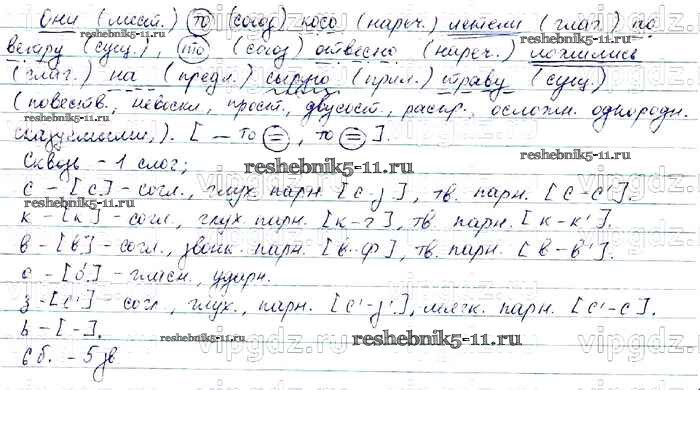 Они (мест.) то (союз) косо (нареч.) летели (глаг.) по
reshebnik5-11.ru
ветру (сущ.), то (союз) отвесно (нареч.) ложились
(глаг.) на (предл.) сырую (прил.) траву (сущ.)
(повеств., невоскл., прост., двусост., распр., осложн. однородн.
reshebnik5-11.ru
сказуемыми,). [ – то =, то = ].
Сквозь – 1 слог;
reshebnik5-11.ru
с – [с] – согл., глух. парн. [с-з], тв. парн. [с-с'].
к – [к] – согл., глух. парн. [к-г], тв. парн. [к-к'].
vipgdz.ru
в – [в] – согл., звонк. парн. [в-ф], тв. парн. [в-в'].
о – [о́] – гласн., ударн.
з – [с'] – согл., глух., парн. [с'-з'], мягк. парн. [с'-с].
ь – [-].
reshebnik5-11.ru
reshebnik5-11.ru
vipgdz.ru
6 б. – 5 зв